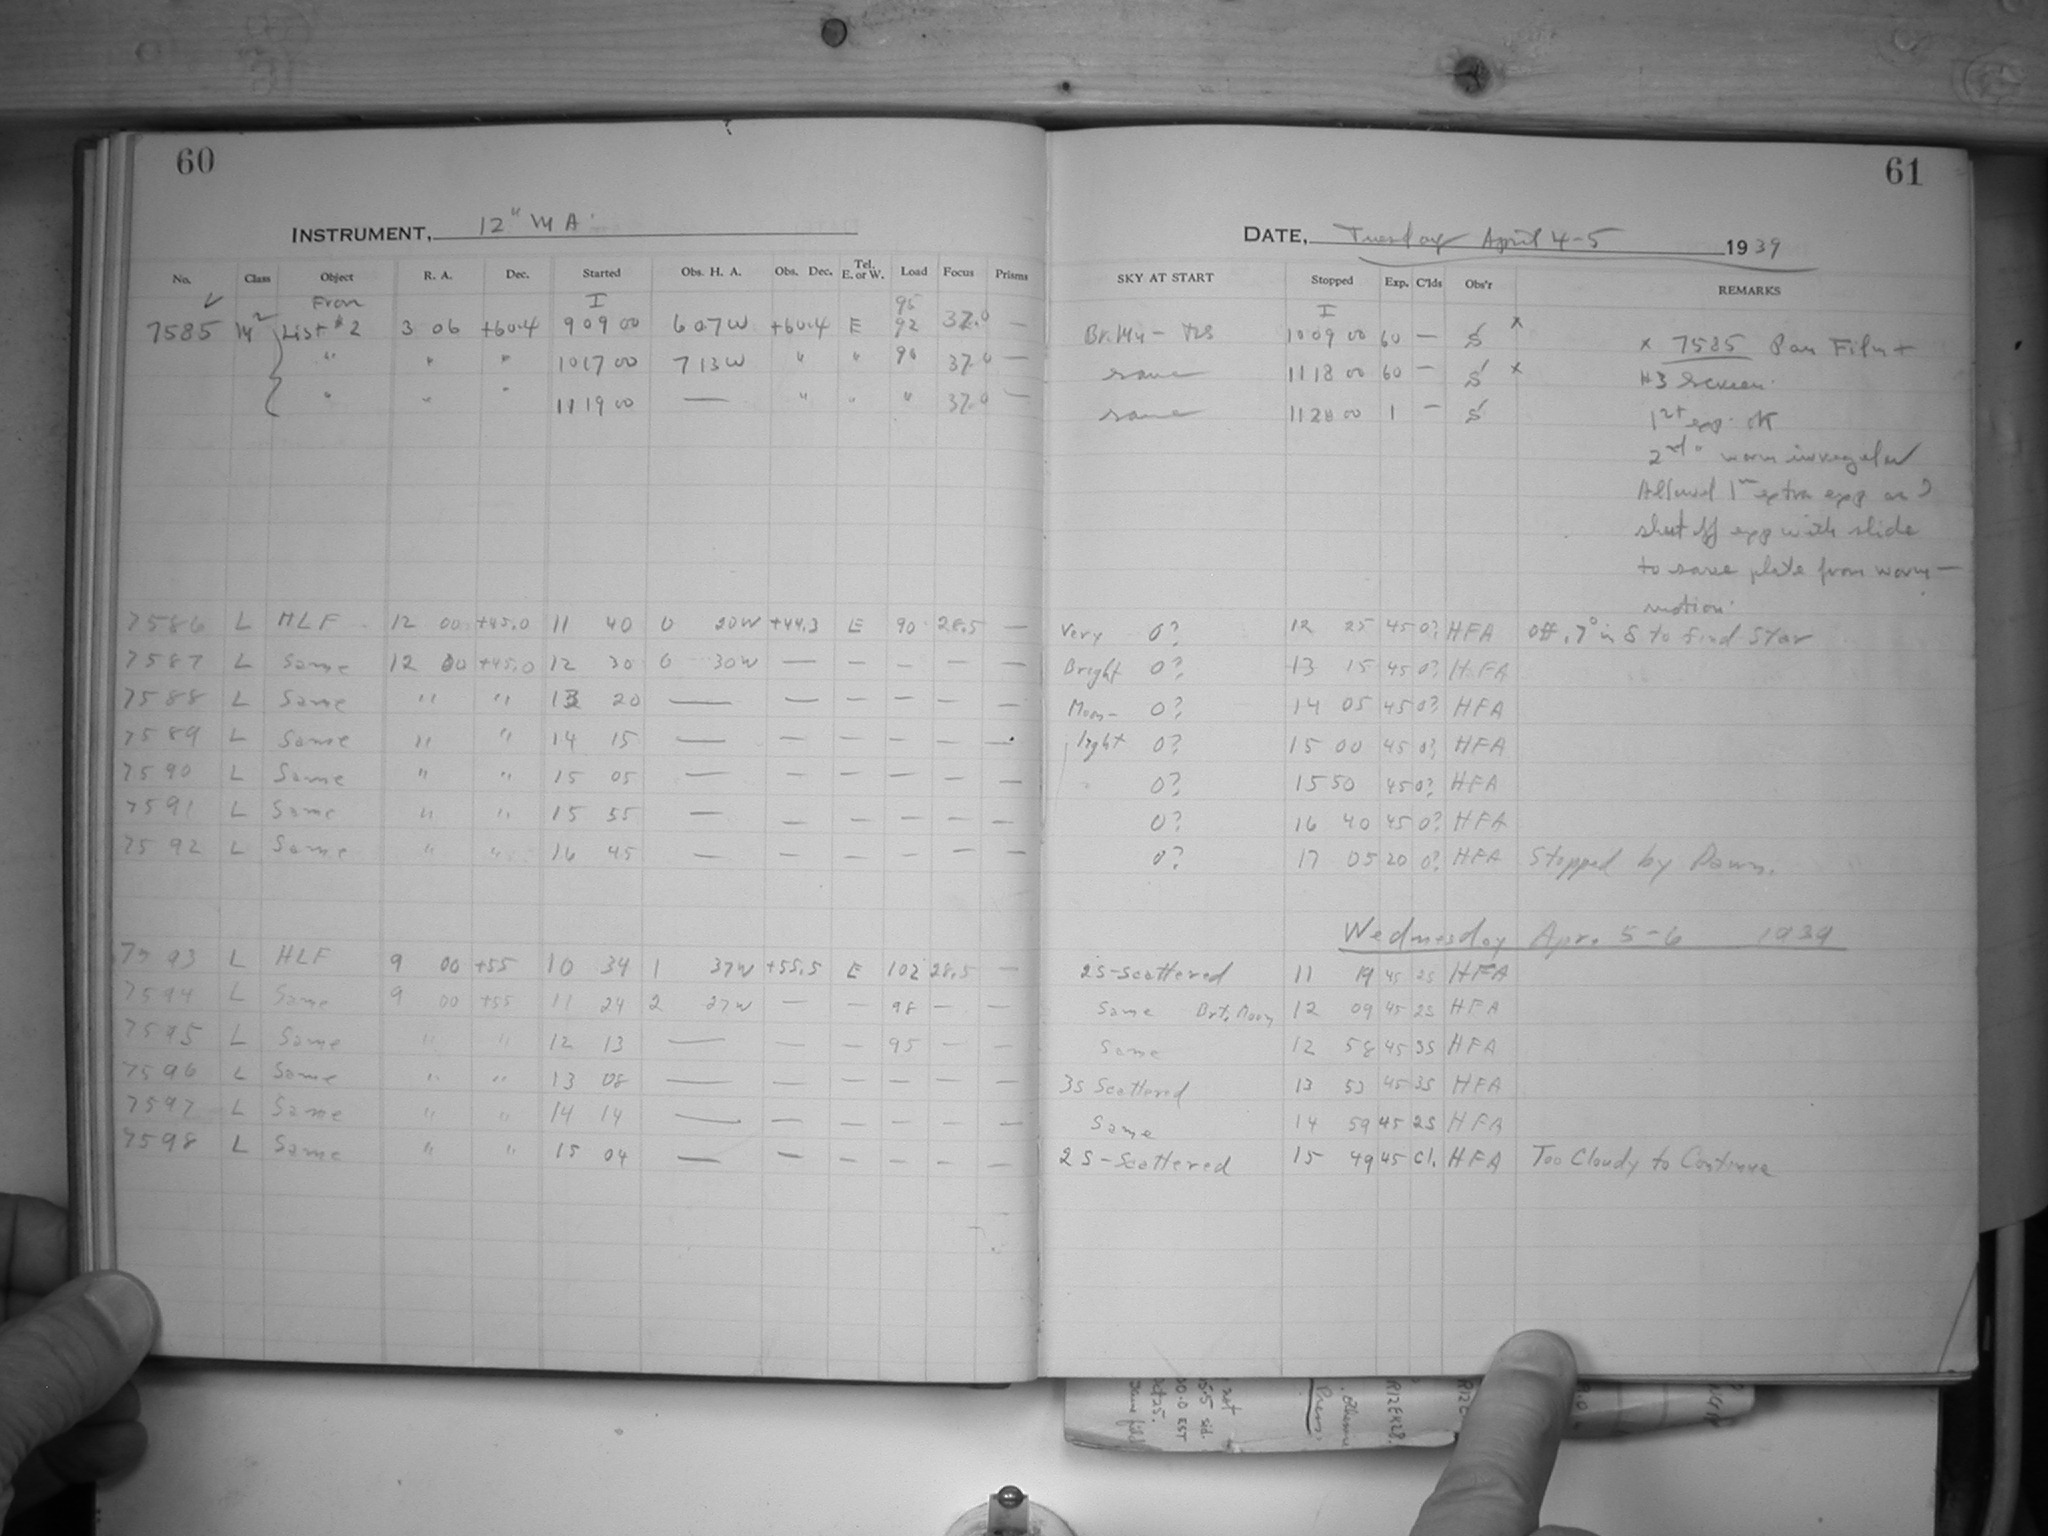 60
INSTRUMENT, 12" MA
No. Class Object R. A. Dec. Started Obs. H. A. Obs. Dec. Tel. E. or W. Load Focus Prisms
From I 95
7585 M2 List #2 3 06 +60.4 9 09 00 6 07 W +60.4 E 92 37.0 —
" " " 10 17 00 7 13 W " " 90 37.0 —
" " " 11 19 00 — " " " 37.0 —
7586 L HLF 12 00 +45.0 11 40 0 20W +44.3 E 90 28.5 —
7587 L Same 12 00 +45.0 12 30 0 30W — — — — —
7588 L Same " " 13 20 — — — — — —
7589 L Same " " 14 15 — — — — — —
7590 L Same " " 15 05 — — — — — —
7591 L Same " " 15 55 — — — — — —
7592 L Same " " 16 45 — — — — — —
7593 L HLF 9 00 +55 10 34 1 37W +55.5 E 102 28.5 —
7594 L Same 9 00 +55 11 24 2 27W — — 98 — —
7595 L Same " " 12 13 — — — 95 — —
7596 L Same " " 13 08 — — — — — —
7597 L Same " " 14 14 — — — — — —
7598 L Same " " 15 04 — — — — — —
61
DATE, Tuesday April 4-5 1939
SKY AT START Stopped Exp. C'lds Obs'r REMARKS
I
Br. Mn - 10 09 00 60 — S x
same 11 18 00 60 — S x
same 11 20 00 1 — S
x 7585 Pan Film +
#3 Screen.
1st exp. OK
2nd " worm irregular
Allowed 1m extra exp on
shut off exp with slide
to save plate from worm —
motion.
Very 0? 12 25 45 0? HFA Off .7° in δ to find Star
Bright 0? 13 15 45 0? HFA
Moon- 0? 14 05 45 0? HFA
light 0? 15 00 45 0? HFA
0? 15 50 45 0? HFA
0? 16 40 45 0? HFA
0? 17 05 20 0? HFA Stopped by Dawn.
Wednesday Apr. 5-6 1939
2S-Scattered 11 19 45 2S HFA
Same Brt. Moon 12 09 45 2S HFA
Same 12 58 45 3S HFA
3S Scattered 13 53 45 3S HFA
Same 14 59 45 2S HFA
2S-Scattered 15 49 45 Cl. HFA Too Cloudy to Continue